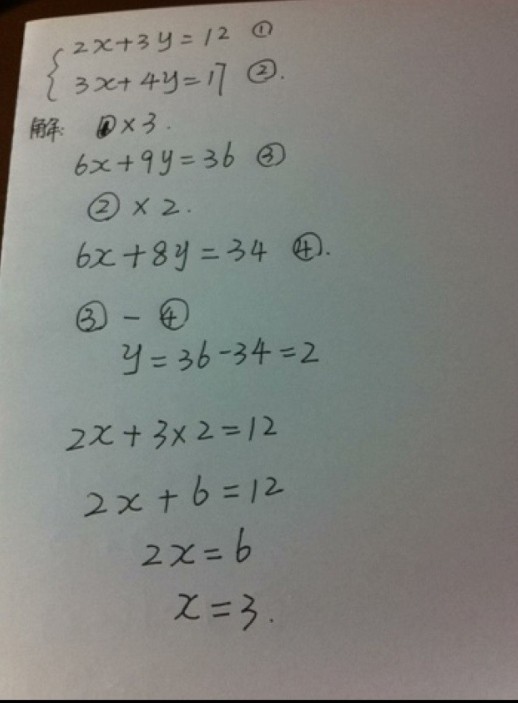 2x+3y=12 ①
3x+4y=17 ②.
解: ①×3.
6x+9y=36 ③
②×2.
6x+8y=34 ④.
③-④
y=36-34=2
2x+3×2=12
2x+6=12
2x=6
x=3.